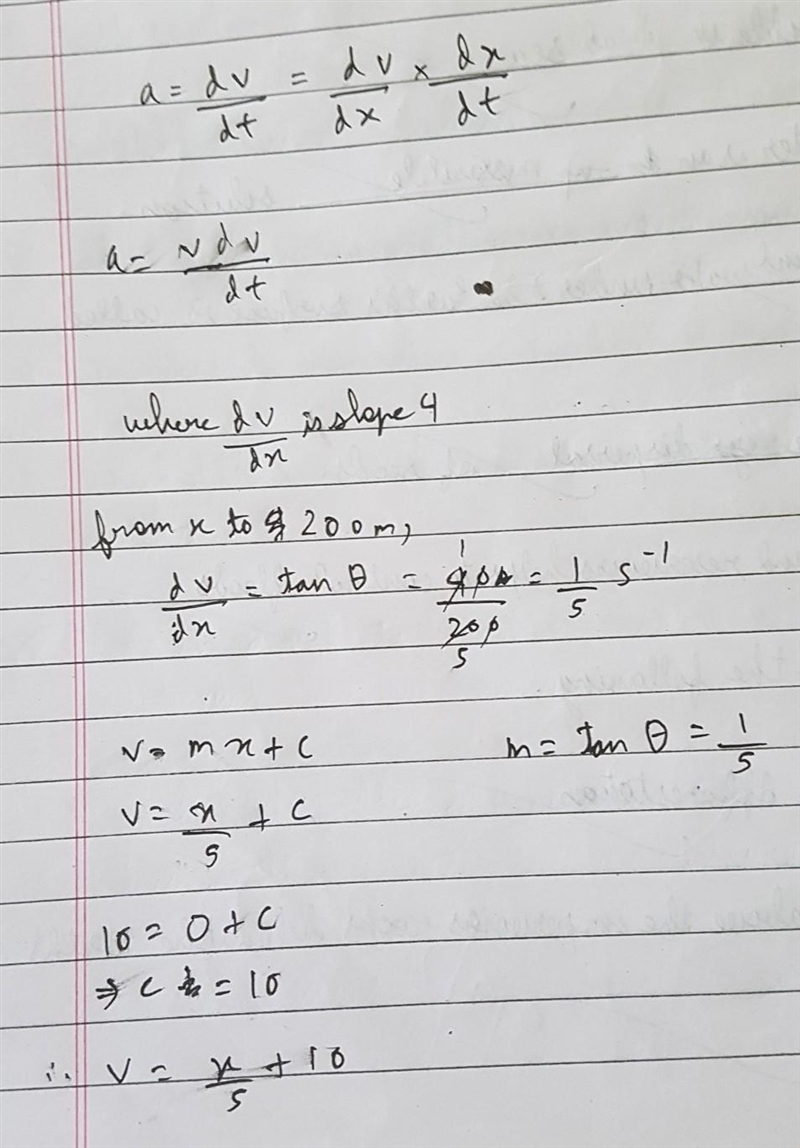 a = dv/dt = dv/dx × dx/dt
a = v dv/dt
where dv/dx is slope 4
from x to 200 m,
dv/dx = tan θ = 40/200 = 1/5 s⁻¹
v = mx + c m = tan θ = 1/5
v = x/5 + c
10 = 0 + c
⇒ c = 10
∴ v = x/5 + 10